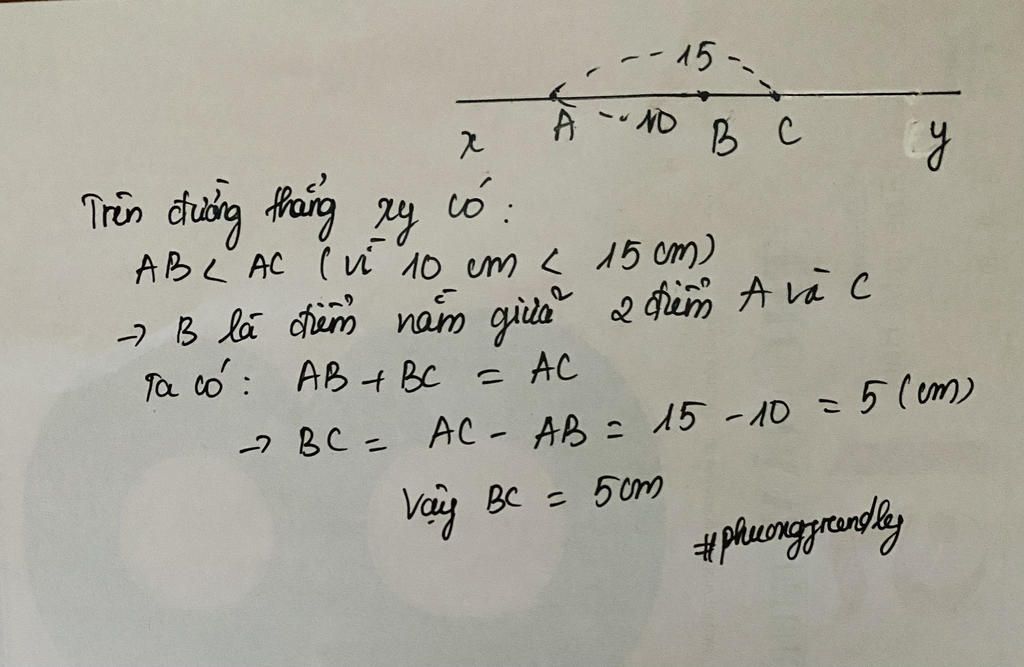 15
10
x A B C y
Trên đường thẳng xy có:
AB < AC (vì 10 cm < 15 cm)
→ B là điểm nằm giữa 2 điểm A và C
Ta có: AB + BC = AC
→ BC = AC - AB = 15 - 10 = 5 (cm)
Vậy BC = 5cm